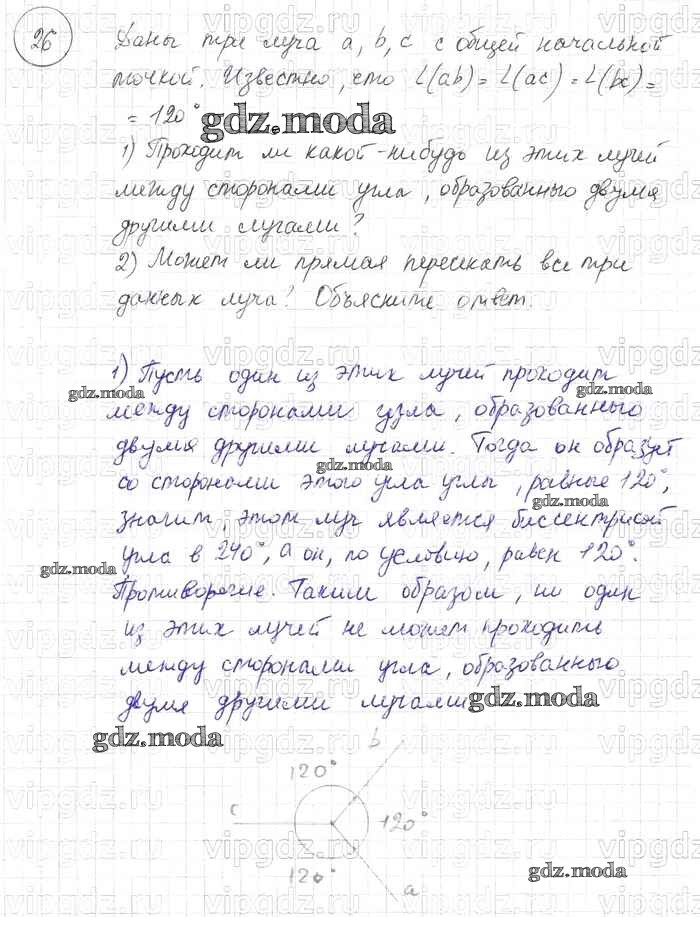 26
Даны три луча a, b, c с общей начальной
точкой. Известно, что ∠(ab) = ∠(ac) = ∠(bc) =
= 120°
gdz.moda
1) Проходит ли какой-нибудь из этих лучей
между сторонами угла, образованного двумя
другими лучами?
2) Может ли прямая пересекать все три
данных луча? Объясните ответ.
1) Пусть один из этих лучей проходит
gdz.moda
gdz.moda
между сторонами угла, образованного
двумя другими лучами. Тогда он образует
gdz.moda
со сторонами этого угла углы, равные 120°,
gdz.moda
значит, этот луч является биссектрисой
угла в 240°, а он, по условию, равен 120°.
gdz.moda
Противоречие. Таким образом, ни один
из этих лучей не может проходить
между сторонами угла, образованного
двумя другими лучами
gdz.moda
gdz.moda
b
120°
c
120°
120°
a
gdz.moda
vipgdz.ru